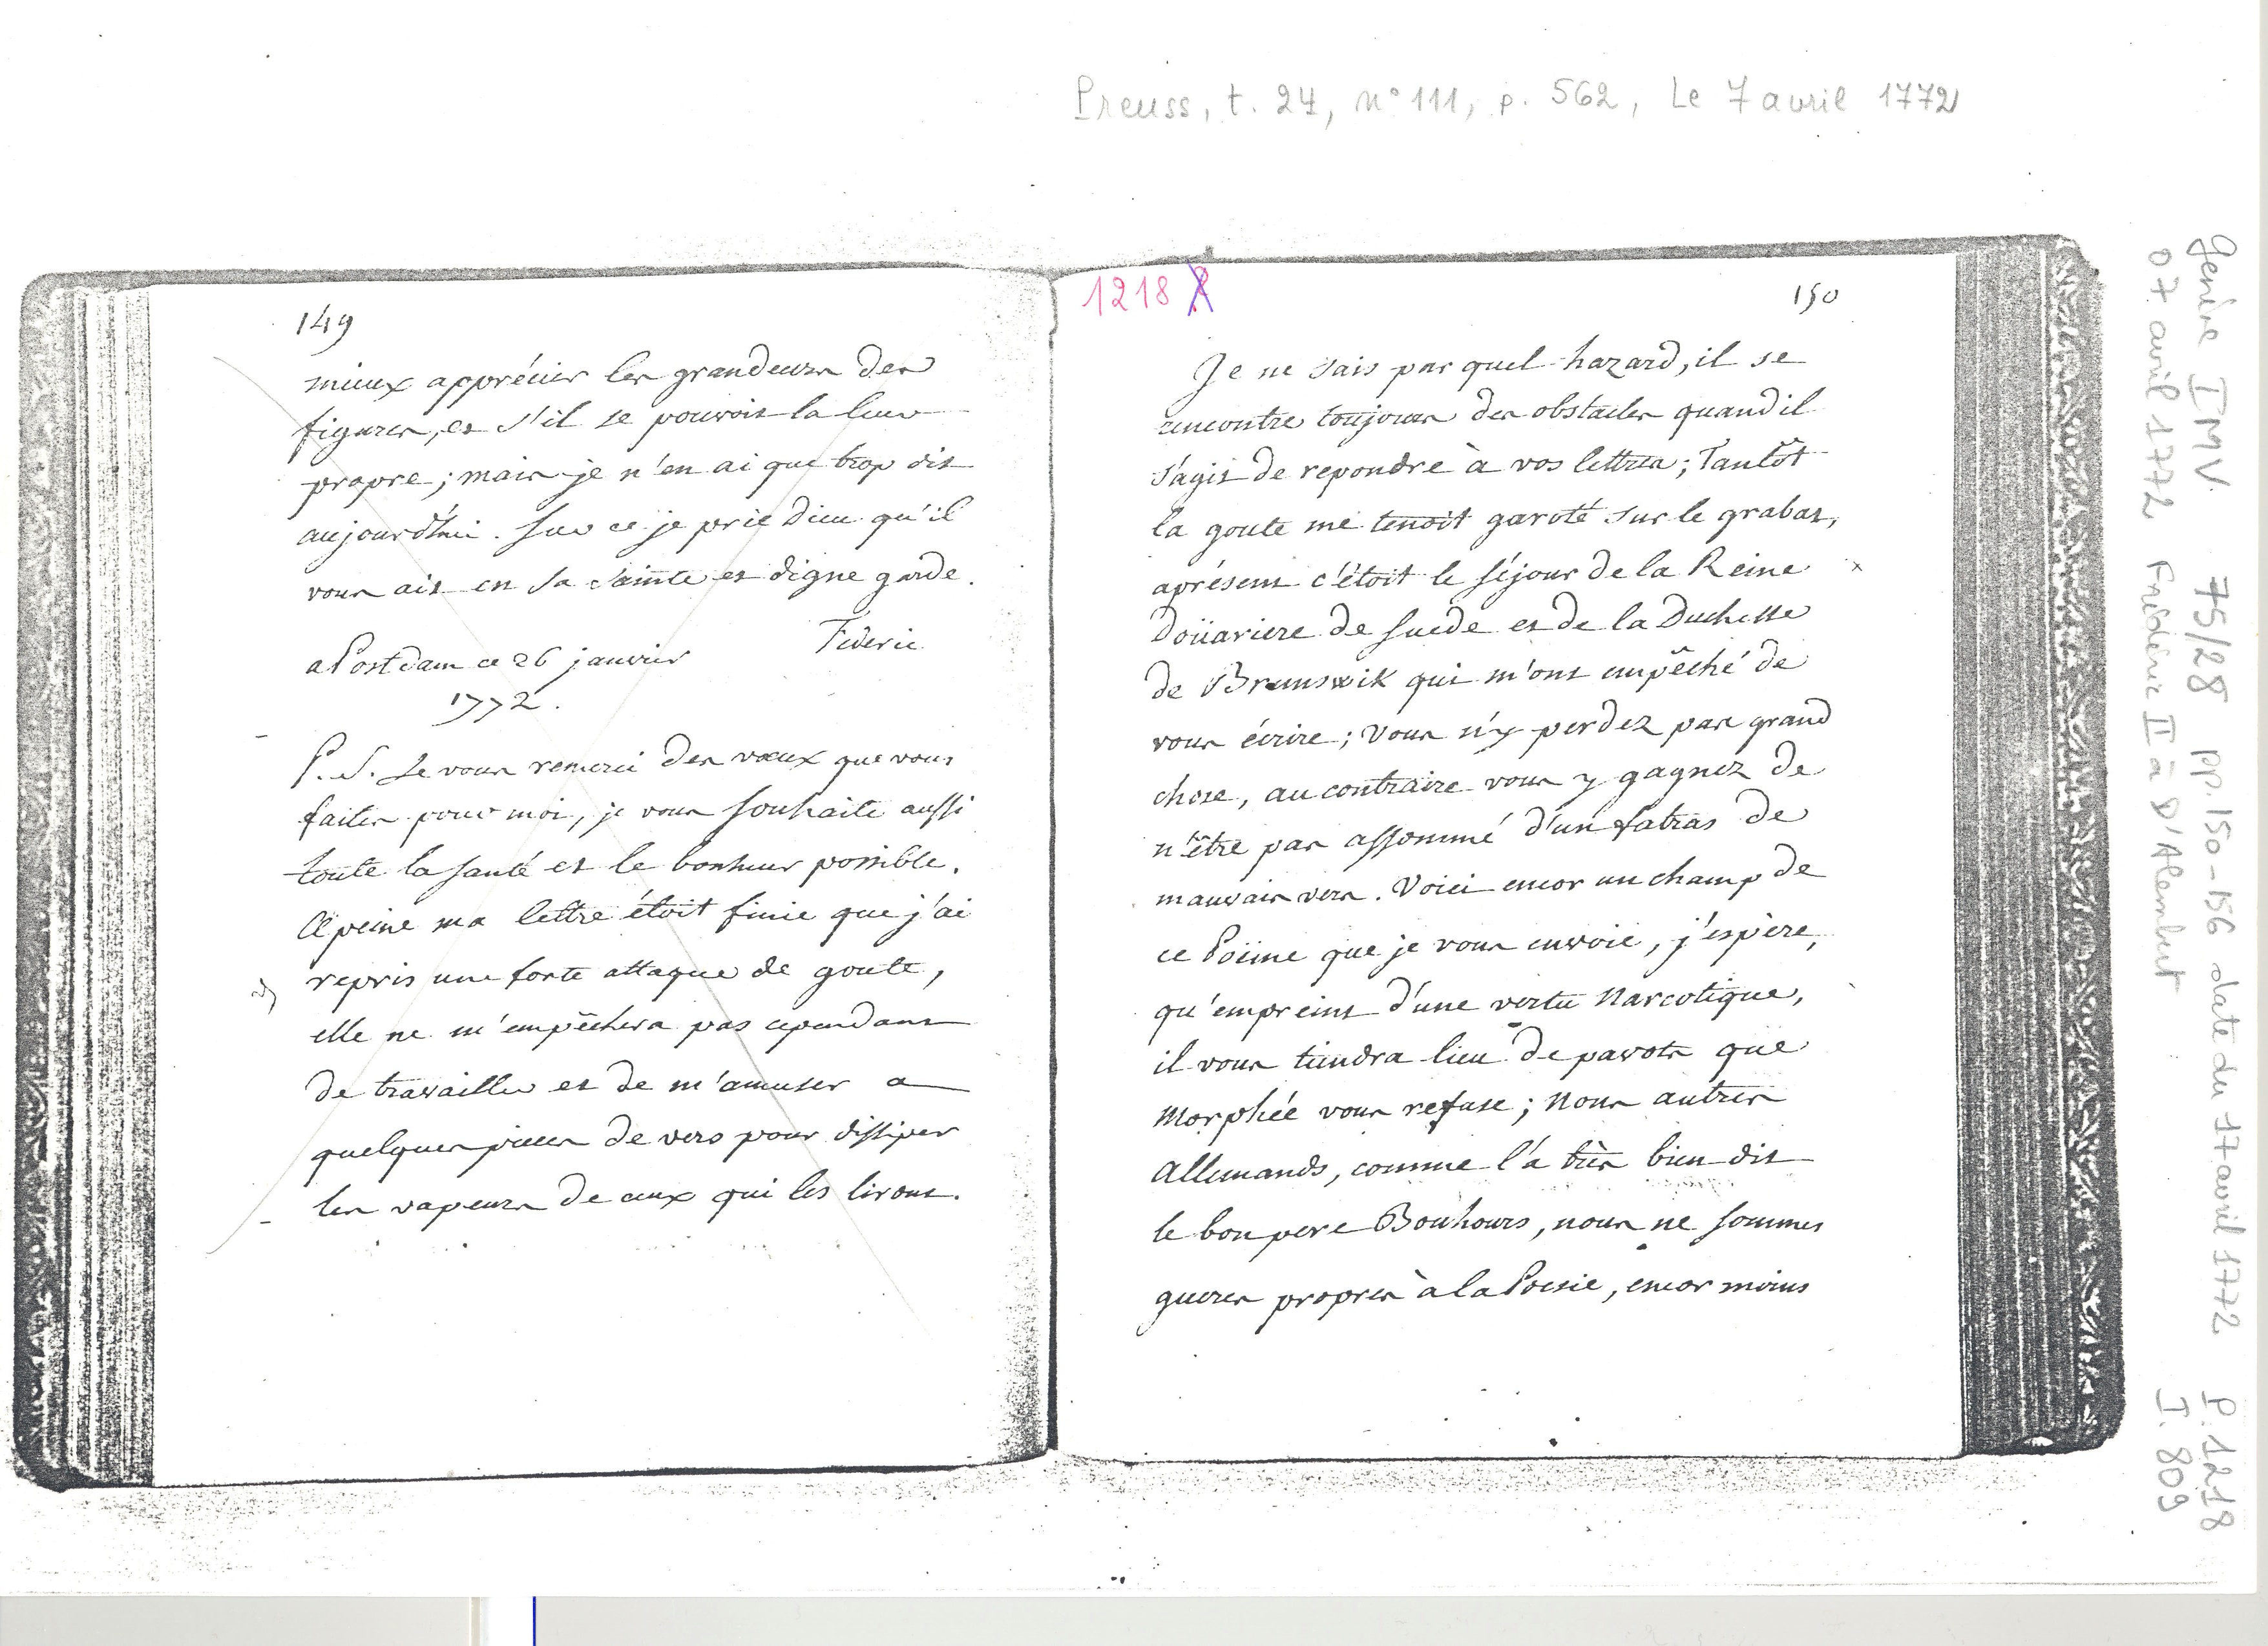 Preuss, t. 24, n° 111, p. 562, Le 7 avril 1772
149
mieux apprécier les grandeurs des
figures, et s'il se pouvoit la leur
propre; mais je n'en ai que trop dit
aujourd'hui. Sur ce je prie Dieu qu'il
vous ait en sa sainte et digne garde.
Féderic
a Postdam ce 26 janvier
1772.
P. S. Je vous remerci des vœux que vous
faites pour moi, je vous souhaite aussi
toute la santé et le bonheur possible.
A peine ma lettre étoit finie que j'ai
repris une forte attaque de goute,
elle ne m'empêchera pas cependant
de travailler et de m'amuser a
quelques pieces de vers pour dissiper
les vapeurs de ceux qui les liront.
1218
150
Je ne sais par quel hazard, il se
rencontre toujours des obstacles quand il
s'agit de repondre à vos lettres; Tantôt
la goute me tenoit garoté sur le grabat,
aprésent c'étoit le séjour de la Reine
Doüariere de Suede et de la Duchesse
de Brunswik qui m'ont empêché de
vous écrire; vous n'y perdez pas grand
chose, au contraire vous y gagnez de
n'être pas assommé d'un fatras de
mauvais vers. Voici encor un champ de
ce Poëme que je vous envoie, j'espère,
qu'empreint d'une vertu narcotique,
il vous tiendra lieu de pavots que
Morphée vous refuse; nous autres
Allemands, comme l'a très bien dit
le bon pere Bouhours, nous ne sommes
gueres propres à la Poesie, encor moins
Genève IMV. 75/28 pp. 150-156 date du 17 avril 1772 P. 1218
07 avril 1772 Frédéric II à D'Alembert I. 809